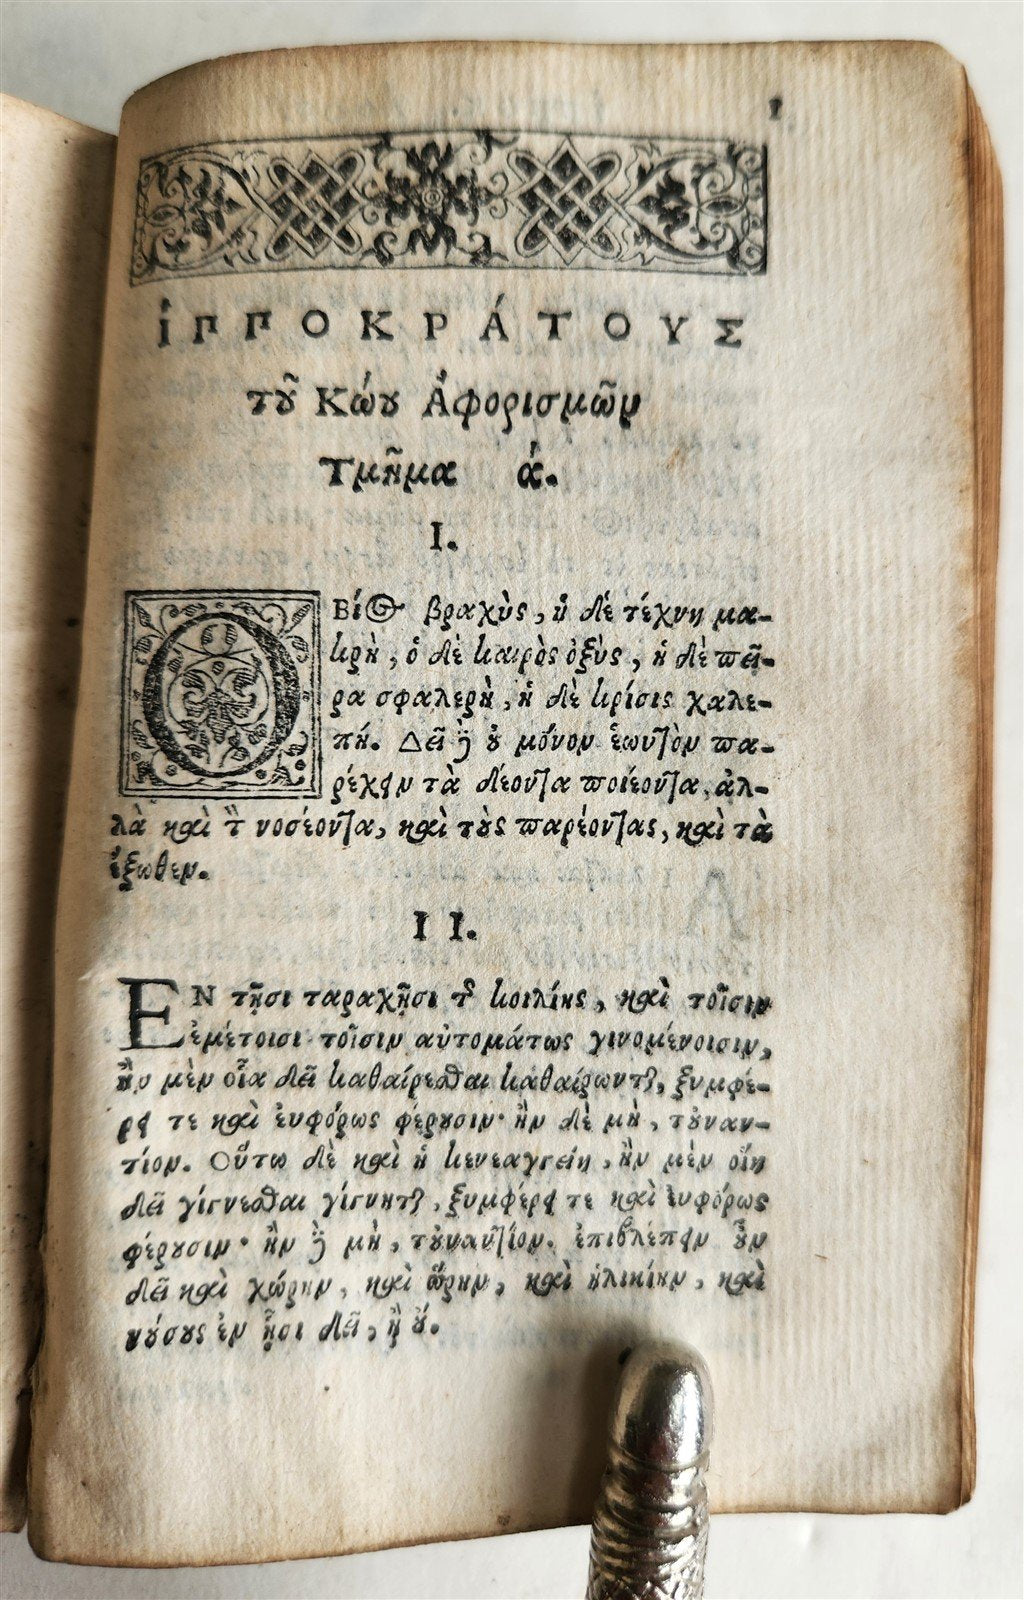 1
ἹΠΠΟΚΡΆΤΟΥΣ
τȣ͂ Κώȣ Ἀφορισμῶν
Τμῆμα ά.
I.
Ο Βίος βραχὺς, ἡ δὲ τέχνη μα-
κρὴ, ὁ δὲ καιρὸς ὀξὺς, ἡ δὲ πεῖ-
ρα σφαλερὴ, ἡ δὲ κρίσις χαλε-
πή. Δεῖ δὲ ȣ̓ μόνον ἑωυτὸν πα-
ρέχειν τὰ δέοντα ποιέοντα, ἀλ-
λὰ καὶ τὸν νοσέοντα, καὶ τȣ̀ς παρέοντας, καὶ τὰ
ἔξωθεν.
II.
ΕΝ τῇσι ταραχῇσι τῆς κοιλίης, καὶ τοῖσιν
ἐμέτοισι τοῖσιν αὐτομάτως γινομένοισιν,
ἢν μὲν οἷα δεῖ καθαίρεσθαι καθαίρωνται, ξυμφέ-
ρει τε καὶ ἐυφόρως φέρȣσιν· ἢν δὲ μὴ, τȣ̓ναν-
τίον. Οὕτω δὲ καὶ ἡ κενεαγγείη, ἢν μὲν οἵη
δεῖ γίγνεσθαι γίγνηται, ξυμφέρει τε καὶ ἐυφόρως
φέρȣσιν· ἢν δὲ μὴ, τȣ̓ναντίον. ἐπιβλέπειν ȣ̓͂ν
δεῖ καὶ χώρην, καὶ ὥρην, καὶ ἡλικίην, καὶ
νȣ́σȣς ἐν ᾗσι δεῖ, ἢ ȣ̓́.